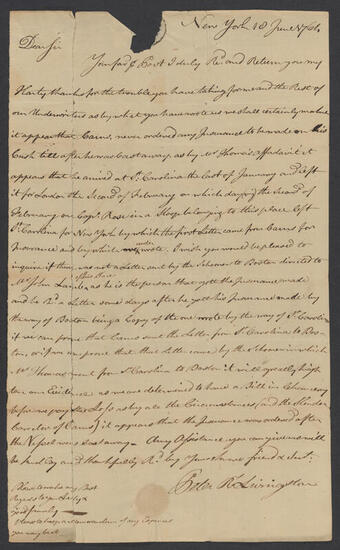 New York 18 June 1764
Dear Sir
Your favr p Post I duly Recd and Return you my
Harty thanks for the trouble you have taking for me and the Rest of
our Underwriters as by what you have wrote us we shall certainly make
it appear that Cairns, never ordered any Insurance to be made on this
Cush till after he was Cast away, as by Mr Thomas's affidavit it
appears that he arived at St Carolina the last of January and left
it for London the Second of February on which day the Second of
February one Capt Rose in a Sloop belonging to this place left
St Carolina for New York by which the first Letter came from Cairns for
Insurance and by which wrote. I wish you would be pleased to
inquire if there was not a Letter sent by the Schooner to Boston directed to
Mr John as he is the person that gott the Insurance made
and he Recd a Letter some days after he gott his Insurance made by
the way of Boston being a Copy of the one wrote by the way of St Carolina
if we can prove that Cairns sent the Letter from St Carolina to Bos-
ton, or if we can prove that that Letter came by the Schooner in which
Mr Thomas went from St Carolina to Boston it will greatly high-
ten our Evidence as we are determined to have a Bill in Chancery
before we pay the Loss as by the Circumstances (and the
Carrecter of Cairns) it appears that the Insurance was ordered after
the Vessel was Cast away - Any Assistance you can give us will
be kind and thankfully Recd by Your friend &
Peter R Livingston
Please to make my Best
Regards to your Lady &
good family
Please to keep a memorandum of any Expences
you may be at